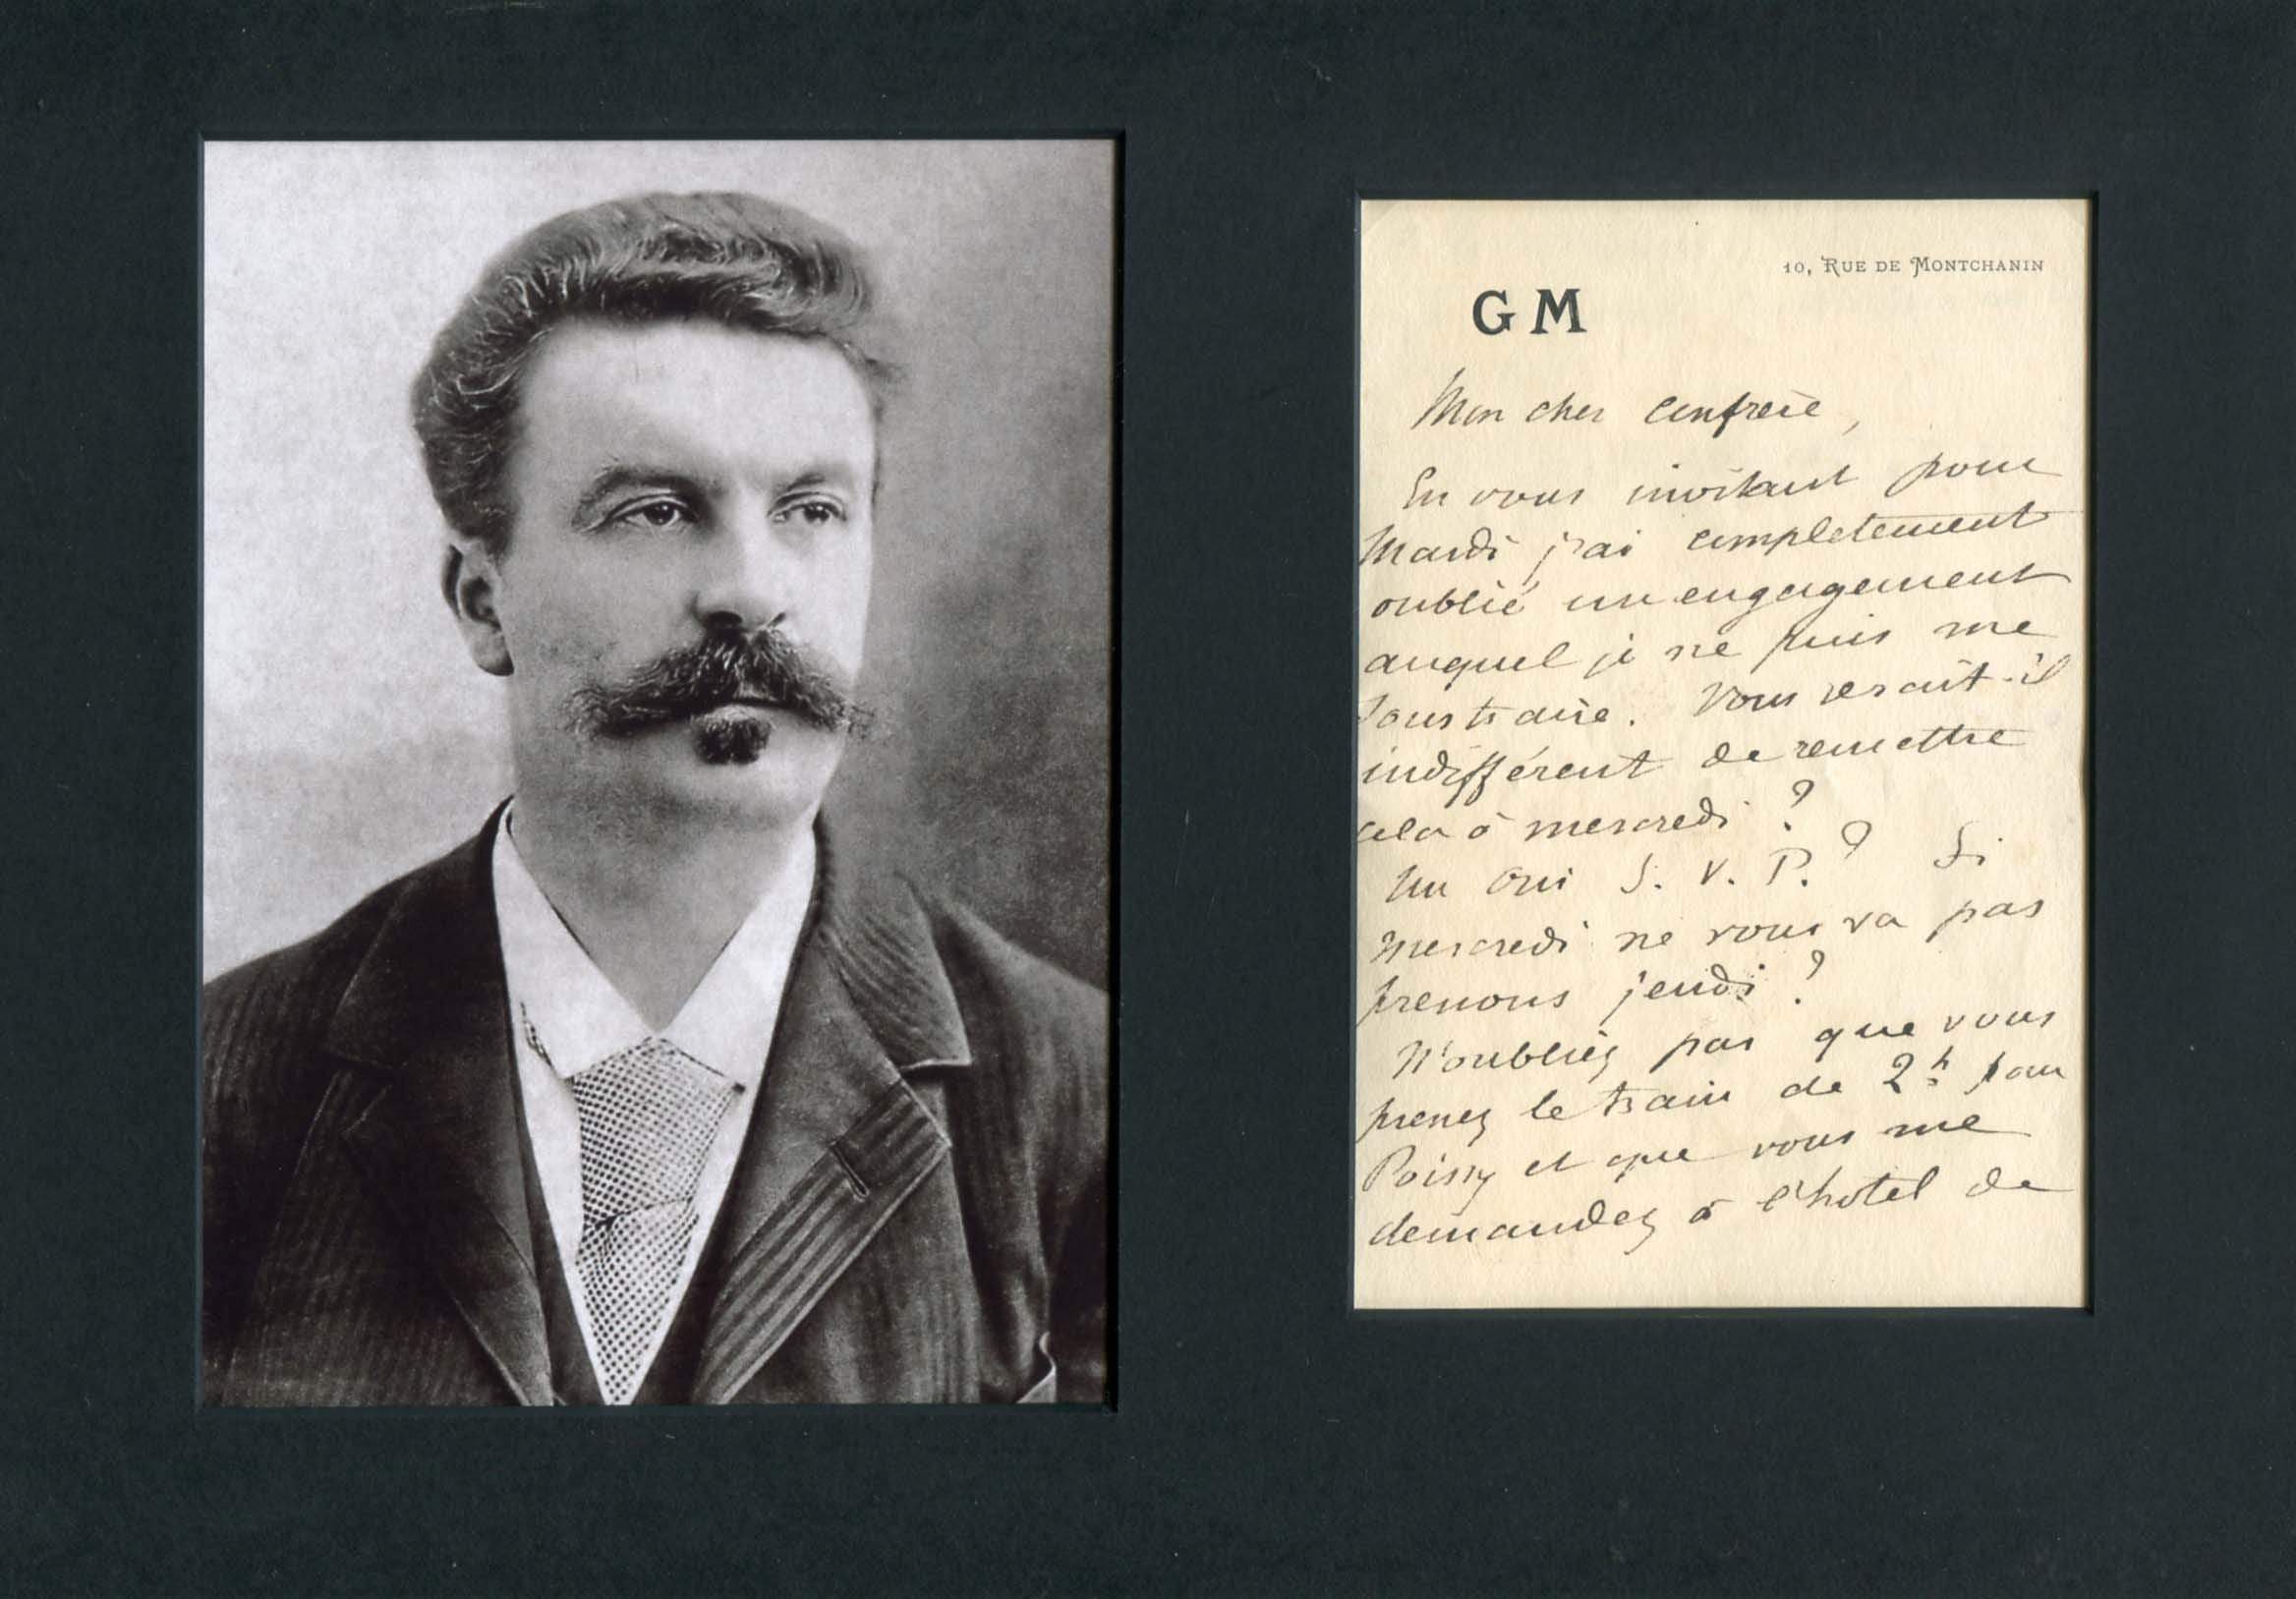 10, RUE DE MONTCHANIN
G M
Mon cher confrère,
En vous invitant pour
Mardi j'ai complètement
oublié un engagement
auquel je ne puis me
soustraire. Vous serait-il
indifférent de remettre
cela à mercredi ?
Un oui S. V. P. ? Si
mercredi ne vous va pas
prenons jeudi ?
N'oubliez pas que vous
prenez le train de 2h pour
Poissy et que vous me
demandez à l'hotel de